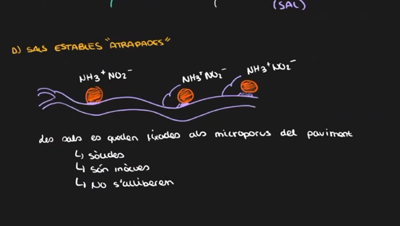 (SAL)
D) SALS ESTABLES "ATRAPADES"
NH3+ NO2-
NH3+NO2-
NH3+NO2-
Les sals es queden fixades als microporus del paviment
↳ sòlides
↳ són inòcues
↳ No s'alliberen